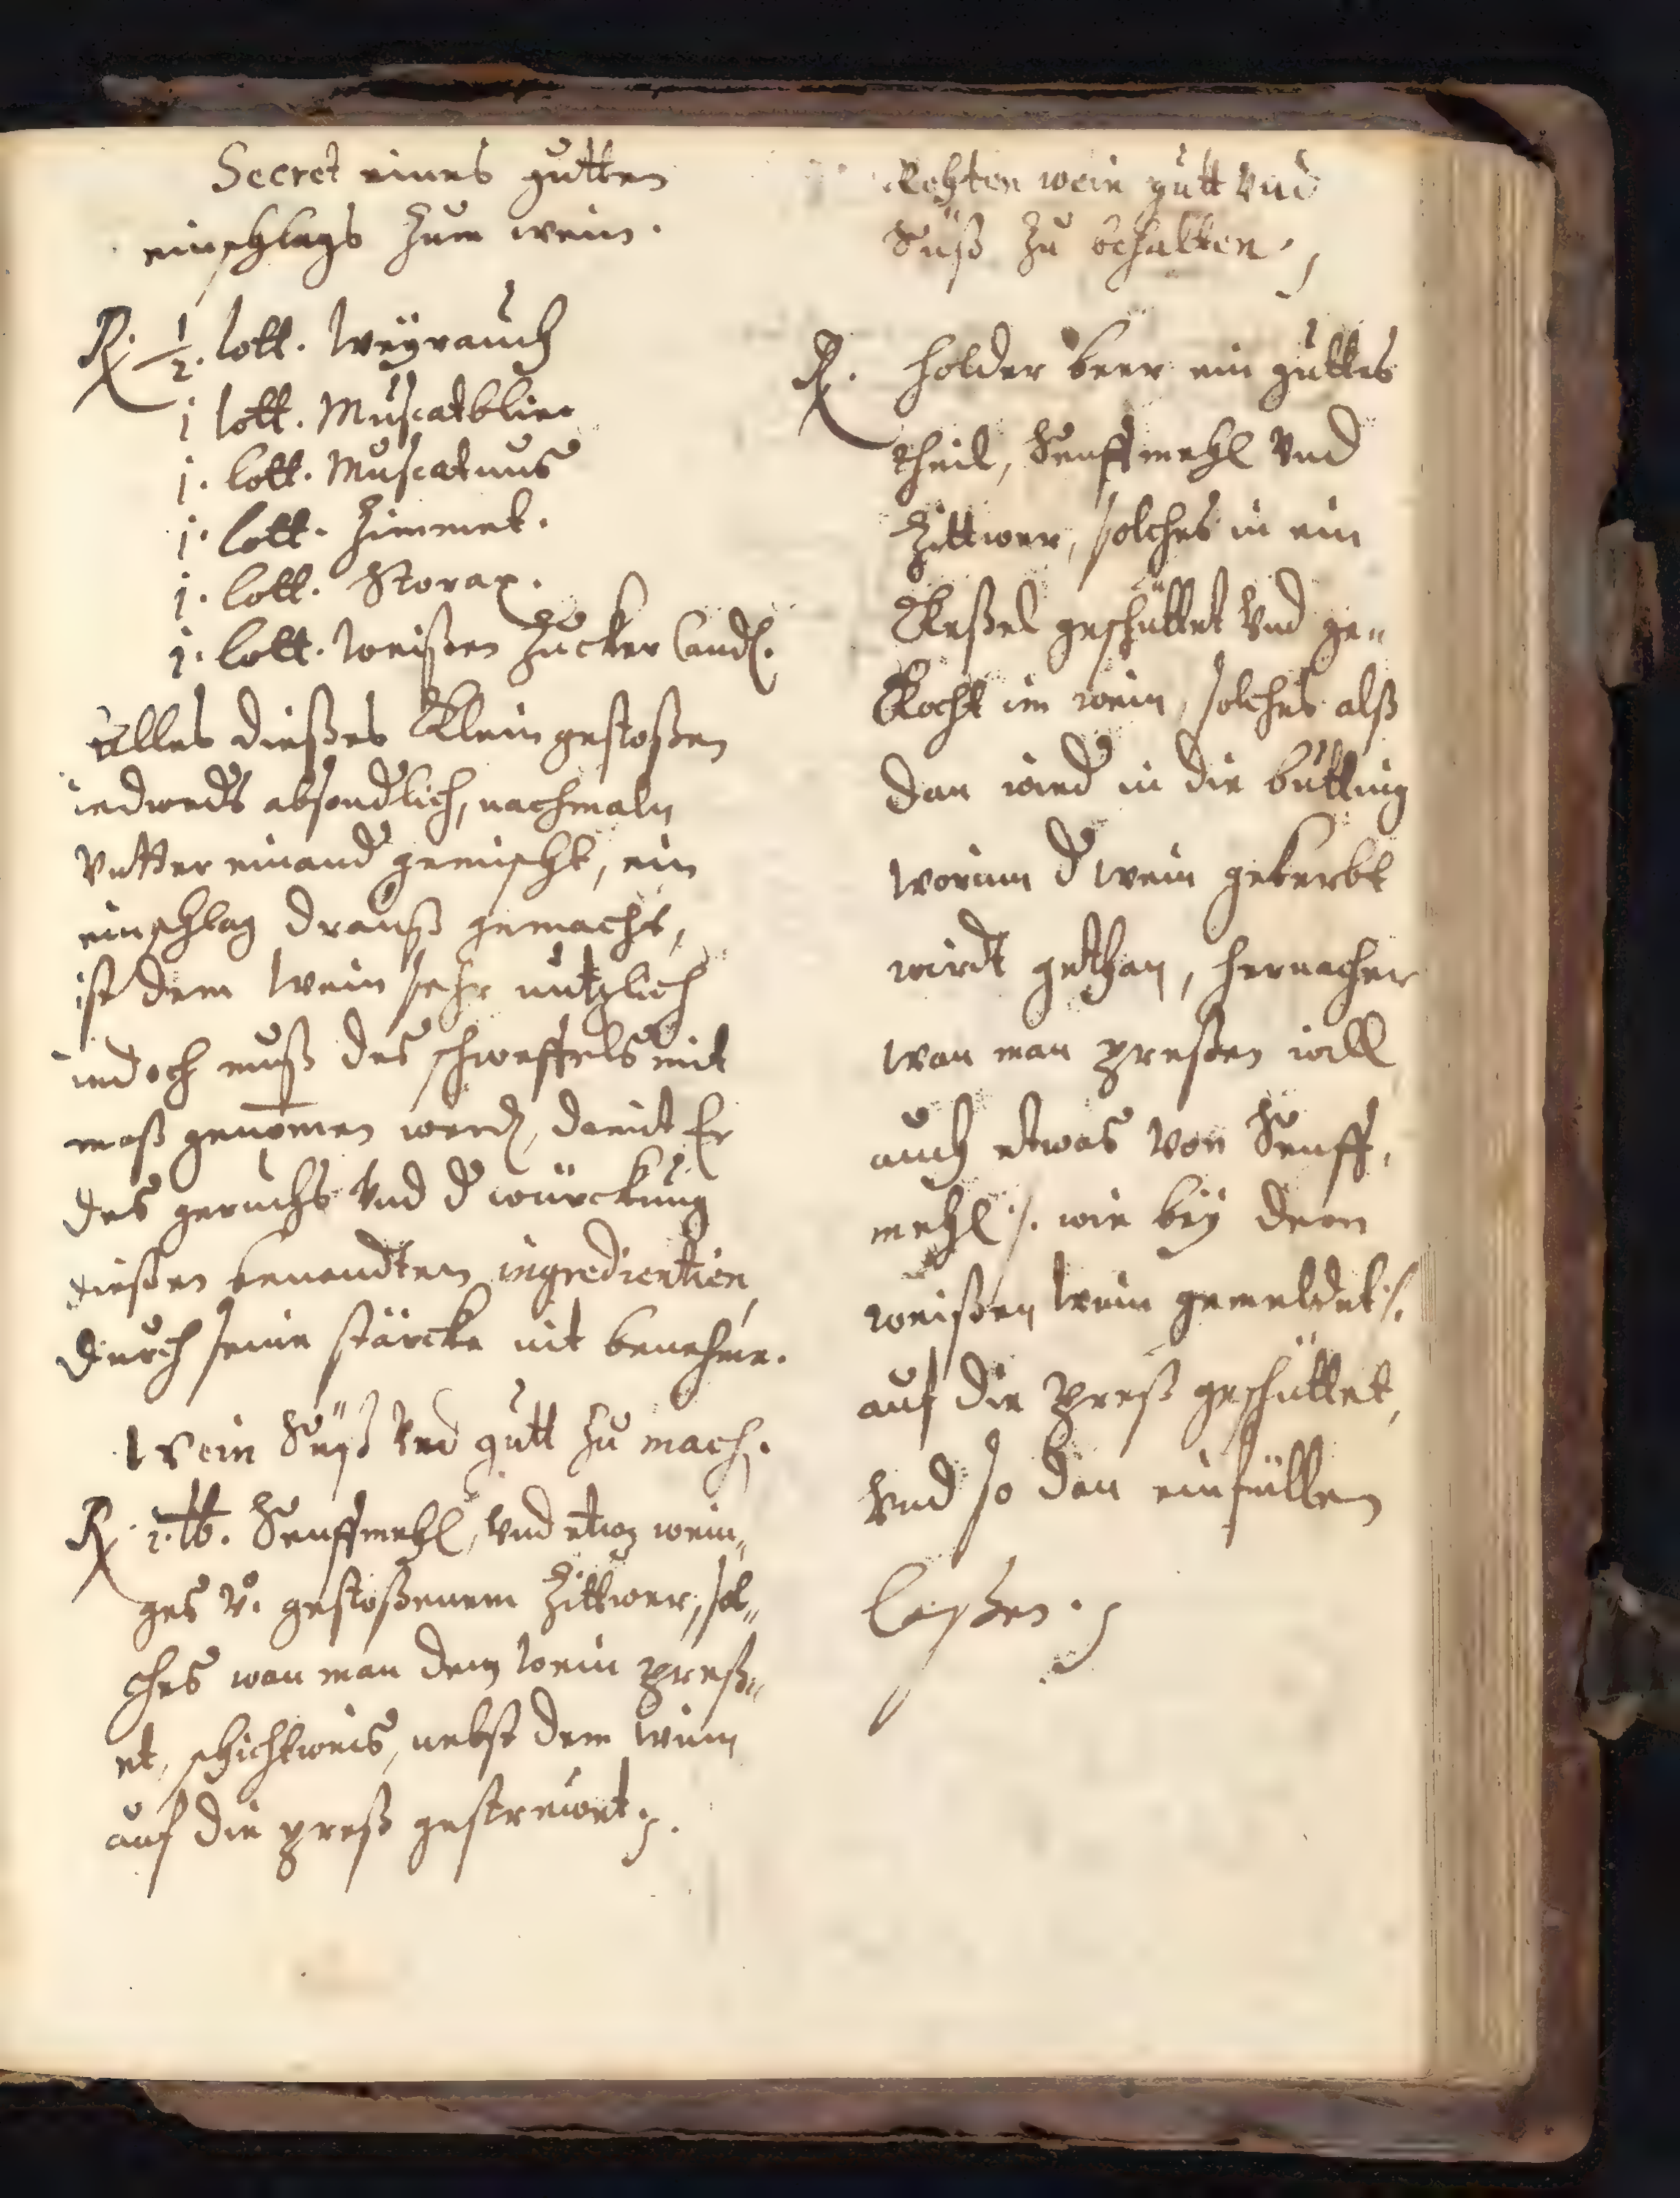 Secret eines gutten
einschlags zum wein.
℞. ½. lott. Weÿrauch
j lott. Muscatblue
j. lott. Muscatnus
j. lott. Zimmet.
j. lott. Storax.
j. lott. weißen Zucker Cand.
Alles dießes klein gestoßen
iedweds absondlich, nachmaln
Vntter einand gemischt, ein
einschlag drauß gemacht,
ist dem wein sehr nutzlich
iedoch muß des schweffels mit
maß genomen werd, damit Er
des geruchs Vnd d würckung
dießen benendten ingredientien,
durch seine stärcke nit beneheme.
Wein Süß Vnd gutt zu mach.
℞. 2. ℔. Senffmehl, Vnd etwz wein„
ges v. gestoßenem Zittwer, sol„
ches wan man den wein preß„
et, schichtweis, nebst dem wein
auf die preß gestrewet.
Rohten wein gutt Vnd
Süß zu behalten.
℞. holder beer ein guttes
theil, Senffmehl Vnd
Zittwer, solches in ein
Keßel geschüttet Vnd ge„
kocht im wein, solches alß
dan wird in die butting
worinn d wein geherbt
wirdt gethan, hernacher
wan man preßen will
auch etwas von Senff,
mehl ./. wie beÿ dem
weißen wein gemeldet ./.
auf die preß geschüttet,
Vnd so dan einfüllen
laßen.